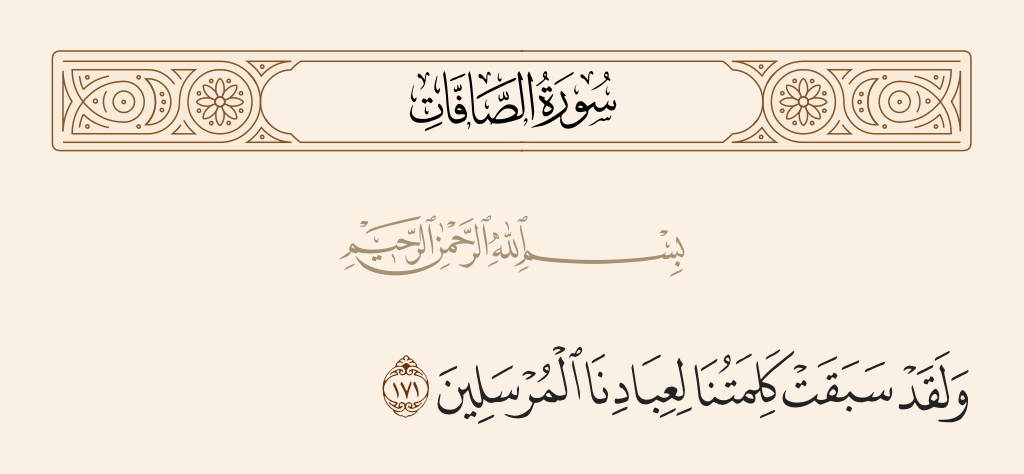 سُورَةُ الصَّافَّاتِ
بِسْمِ ٱللَّهِ ٱلرَّحْمَٰنِ ٱلرَّحِيمِ
وَلَقَدْ سَبَقَتْ كَلِمَتُنَا لِعِبَادِنَا ٱلْمُرْسَلِينَ ١٧١